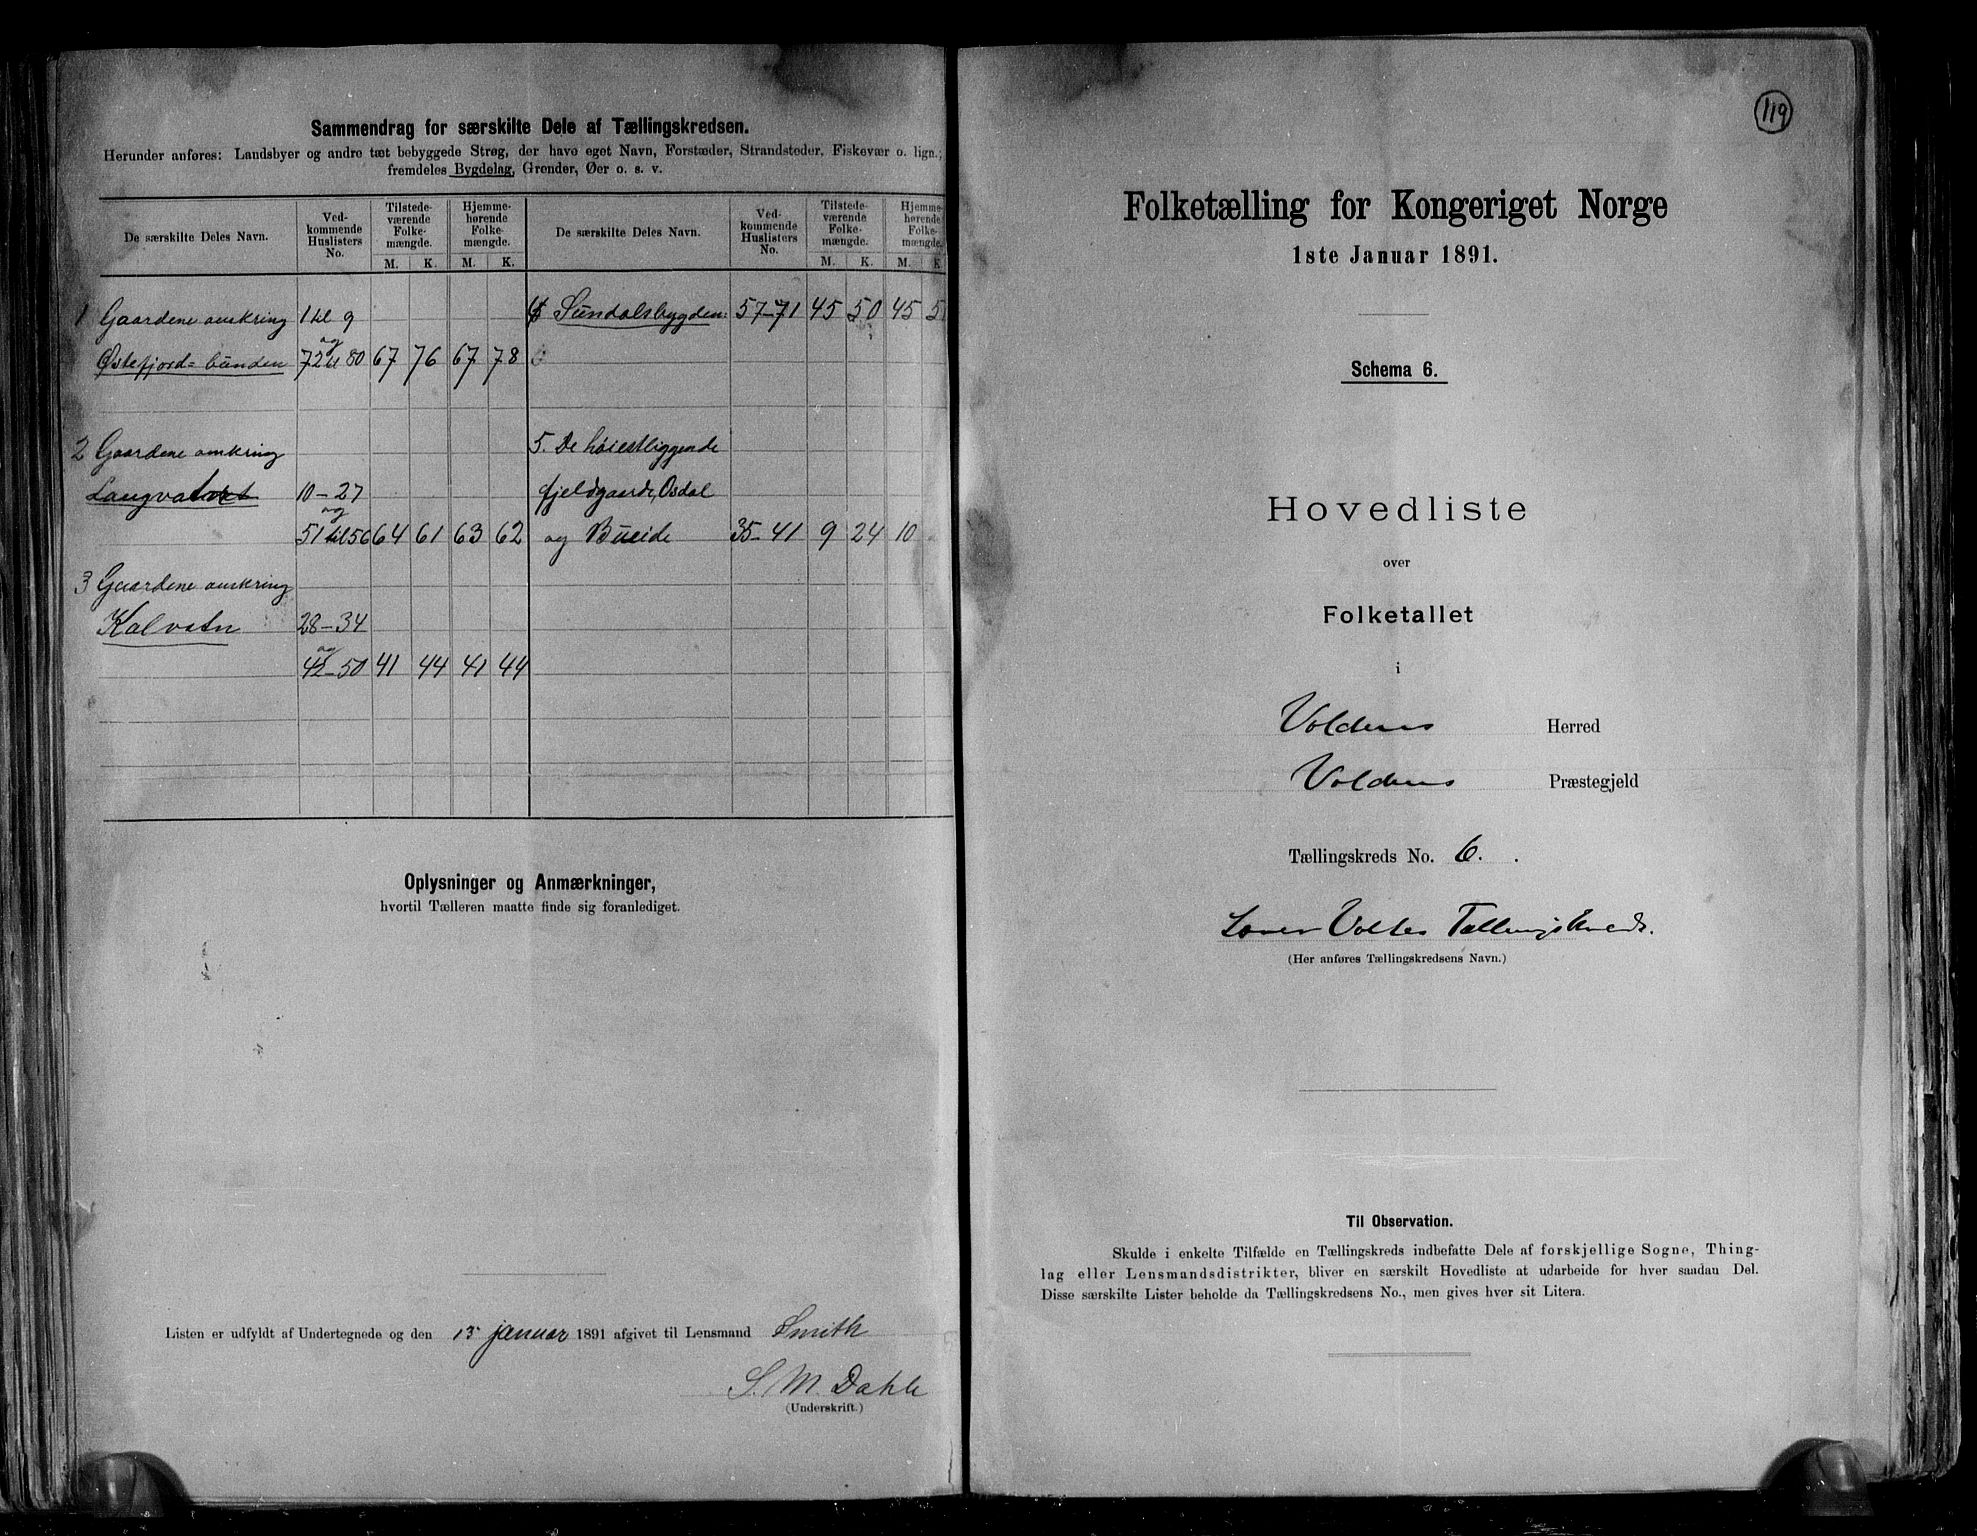 Sammendrag for særskilte Dele af Tællingskredsen.
Herunder anføres: Landsbyer og andre tæt bebyggede Strøg, der have eget Navn, Forstæder, Strandsteder, Fiskevær o. lign.;
fremdeles Bygdelag, Grender, Øer o. s. v.
De særskilte Deles Navn. Ved-kommende Huslisters No. Tilstede-værende Folke-mængde. Hjemme-hørende Folke-mængde. De særskilte Deles Navn. Ved-kommende Huslisters No. Tilstede-værende Folke-mængde. Hjemme-hørende Folke-mængde.
M. K. M. K. M. K. M. K.
1 Gaardene omkring 1 til 9 4 Sundalsbygden: 57-71 45 50 45
og
Østefjord=bunden 72 til 80 67 76 67 78
2 Gaardene omkring 5. De høiestliggende
10-27 fjeldgaarde, Osdal
og
51 til 56 64 61 63 62 og Bueide 35-41 9 24 10
3 Gaardene omkring
Kalvatn 28-34
og
42-50 41 44 41 44
Oplysninger og Anmærkninger,
hvortil Tælleren maatte finde sig foranlediget.
Listen er udfyldt af Undertegnede og den 15 januar 1891 afgivet til Lensmand Smith
S. M. Dahle
(Underskrift.)
119
Folketælling for Kongeriget Norge
1ste Januar 1891.
Schema 6.
Hovedliste
over
Folketallet
i
Voldens Herred
Voldens Præstegjeld
Tællingskreds No. 6.
Tællingskreds.
(Her anføres Tællingskredsens Navn.)
Til Observation.
Skulde i enkelte Tilfælde en Tællingskreds indbefatte Dele af forskjellige Sogne, Thing-
lag eller Lensmandsdistrikter, bliver en særskilt Hovedliste at udarbeide for hver saadan Del.
Disse særskilte Lister beholde da Tællingskredsens No., men gives hver sit Litera.